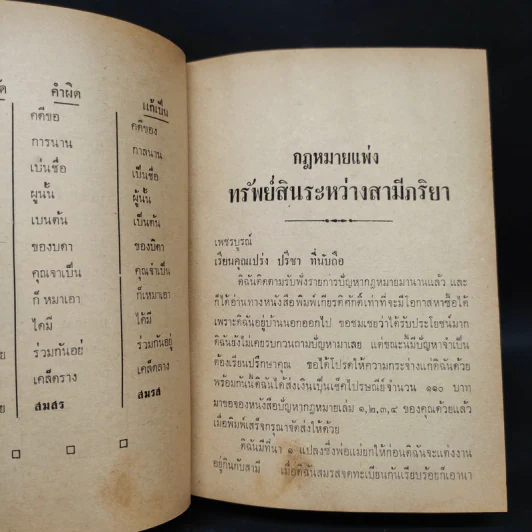 คำผิด
แก้เป็น
คดีขอ
คดีของ
การนาน
กาลนาน
เบ่นชื่อ
เป็นชื่อ
ผูนั้น
ผู้นั้น
เบนต้น
เป็นต้น
ของบดา
ของบิดา
คุณจาเป็น
คุณจำเป็น
ก็ หมาเอา
ก็เหมาเอา
ใดมี
ได้มี
ร่วมกันอย่
ร่วมกันอยู่
เคล็ดราง
เคล็ดลาง
สมสร
สมรส
กฎหมายแพ่ง
ทรัพย์สินระหว่างสามีภริยา
เพชรบูรณ์
เรียนคุณแปร่ง ปรีชา ที่นับถือ
ดิฉันติดตามรับฟังรายการปัญหากฎหมายมานานแล้ว และ
ก็ได้อ่านทางหนังสือพิมพ์เกียรติศักดิ์เท่าที่จะมีโอกาสหาซื้อได้
เพราะดิฉันอยู่บ้านนอกออกไป ขอชมเชยว่าได้รับประโยชน์มาก
ดิฉันยังไม่เคยรบกวนถามปัญหามาเลย แต่ขณะนี้มีปัญหาจำเป็น
ต้องเรียนปรึกษาคุณ ขอได้โปรดให้ความกระจ่างแก่ดิฉันด้วย
พร้อมกันนี้ดิฉันได้ส่งเงินเป็นเช็คไปรษณีย์จำนวน ๑๑๐ บาท
มาขอจองหนังสือปัญหากฎหมายเล่ม ๑,๒,๓,๔ ของคุณด้วยแล้ว
เมื่อพิมพ์เสร็จกรุณาจัดส่งให้ด้วย
ดิฉันมีที่นา ๑ แปลงซึ่งพ่อแม่ยกให้ก่อนดิฉันจะแต่งงาน
อยู่กินกับสามี เมื่อดิฉันสมรสจดทะเบียนกันเรียบร้อยก็เอานา